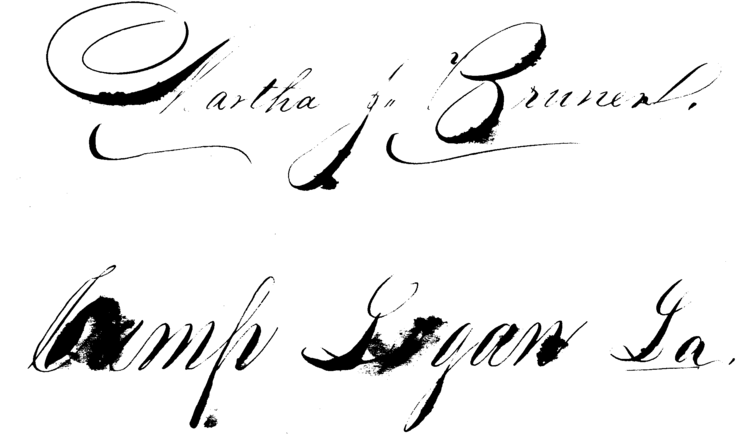 Martha J. Brunent.
Camp Logan La.